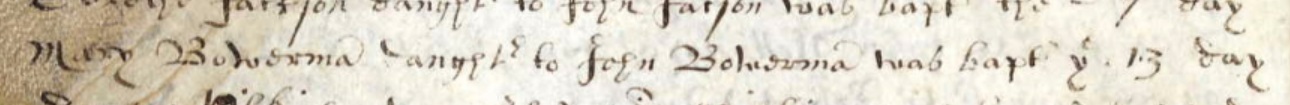 Jackson daught to John Jacson was bapt the 7 day
Mary Bowermā daught^r to John Bowermā was bapt y^e. 13 day